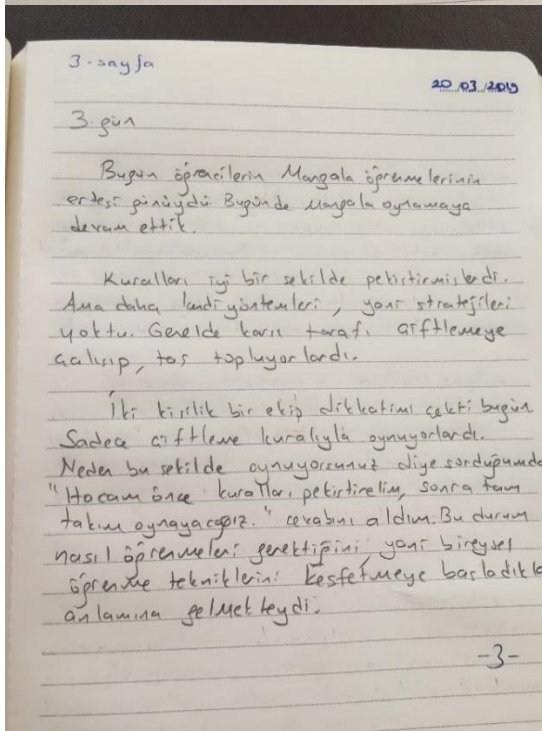 3-sayfa
20.03.2019
3.gün
Bugün öğrecilerin Mangala öğrenmelerinin
ertesi günüydü Bugünde Mangala oynamaya
devam ettik.
Kuralları iyi bir sekilde pekistirmislerdi.
Ama daha kendi yöntemleri, yani stratejileri
yoktu. Genelde karsı tarafı çiftlemeye
çalışıp, tas topluyorlardı.
İki kisilik bir ekip dikkatimi çekti bugün
Sadece çiftleme kuralıyla oynuyorlardı.
Neden bu sekilde oynuyorsunuz diye sorduğumda
"Hocam önce kuralları pekistirelim, sonra tam
takım oynayacağız." cevabını aldım. Bu durum
nasıl öğrenmeleri gerektiğini, yani bireysel
öğrenme tekniklerini keşfetmeye başladıkla
anlamına gelmekteydi.
-3-